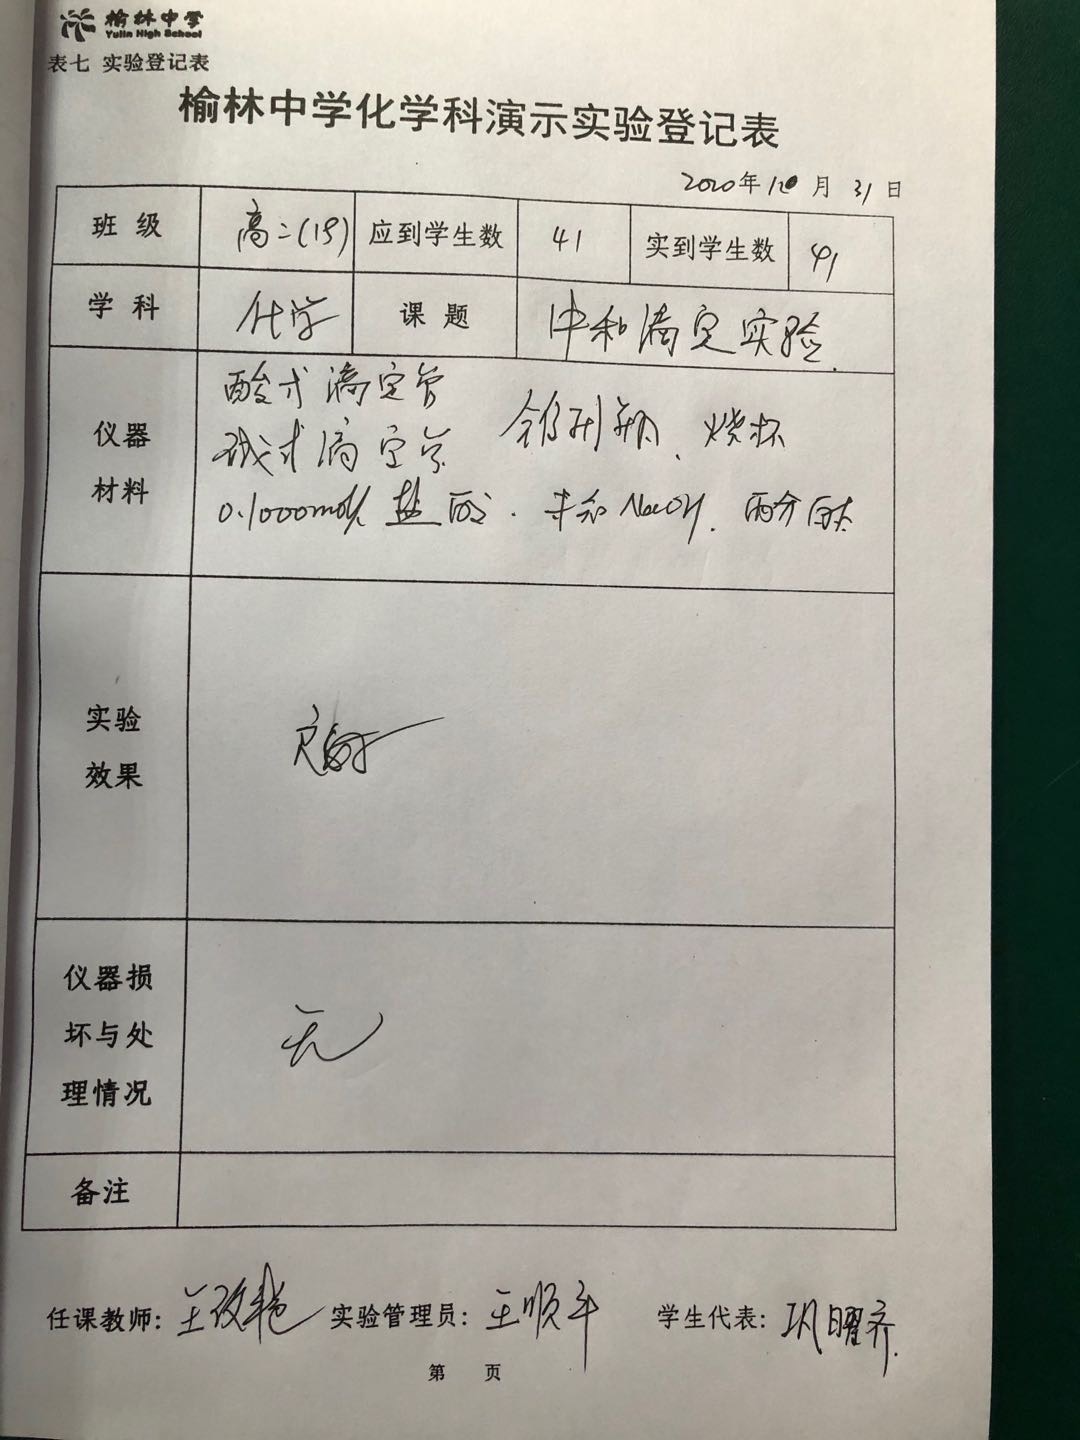 榆林中学
Yulin High School
表七 实验登记表
榆林中学化学科演示实验登记表
2020年 月 31日
班级 高二(19) 应到学生数 41 实到学生数 41
学科 化学 课题 中和滴定实验.
仪器材料
酸式滴定管
碱式滴定管 锥形瓶、烧杯
0.1000mol/L 盐酸. 未知NaOH. 酚酞
实验效果
良好
仪器损坏与处理情况
无
备注
任课教师: 王改艳 实验管理员: 王顺平 学生代表: 巩曜齐.
第 页